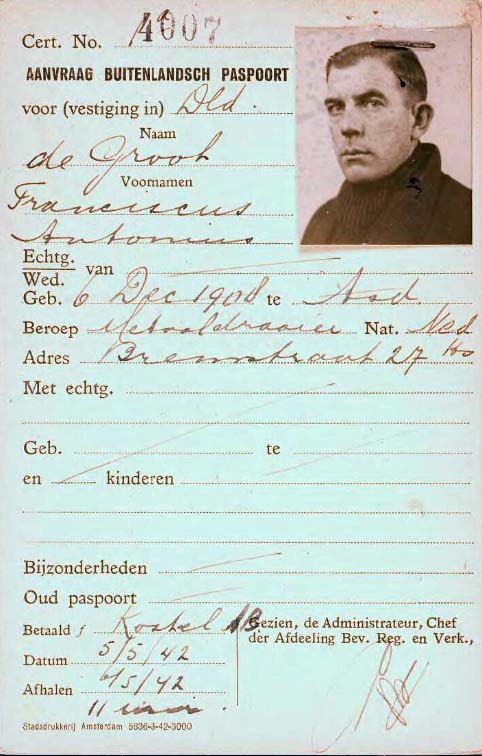 Cert. No. 4007
AANVRAAG BUITENLANDSCH PASPOORT
voor (vestiging in) Dld.
Naam
de Groot
Voornamen
Franciscus
Antonius
Echtg.
Wed. van
Geb. 6 Dec 1908 te Asd.
Beroep Metaaldraaier Nat. Ned
Adres Bremstraat 27 hs
Met echtg.
Geb. te
en kinderen
Bijzonderheden
Oud paspoort
Betaald f
Gezien, de Administrateur, Chef
der Afdeeling Bev. Reg. en Verk.,
Datum 5/5/42
Afhalen 6/5/42
11 uur.
Stadsdrukkerij Amsterdam 5836-3-42-3000